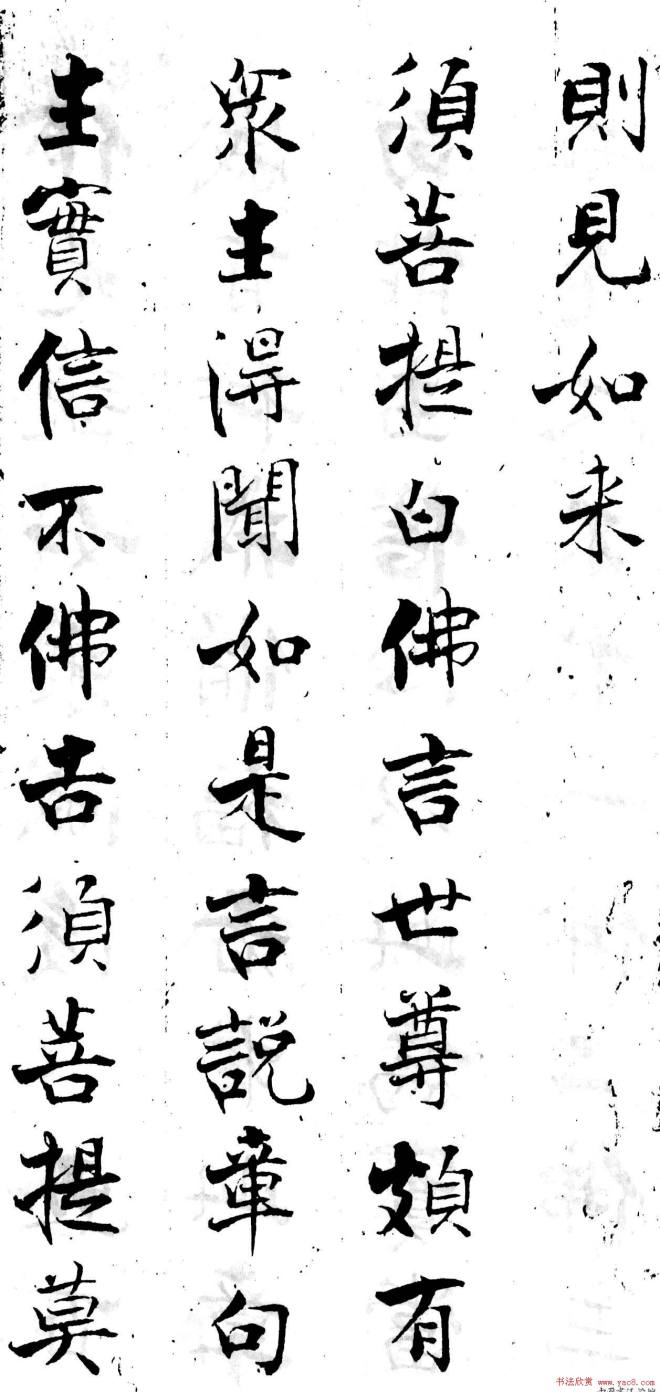 則見如来
須菩提白佛言世尊頗有
衆生得聞如是言説章句
生實信不佛告須菩提莫
书法欣赏 www.yac8.com